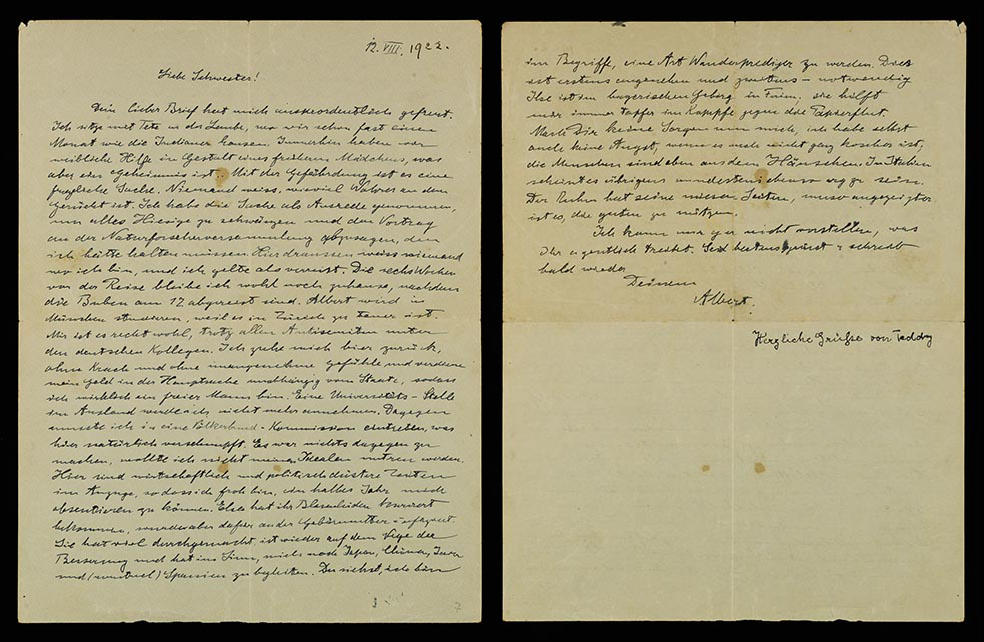 12. VIII. 1922.
Liebe Schwester!
Dein lieber Brief hat mich ausserordentlich gefreut.
Ich sitze mit Tete in der Laube, wo wir schon fast einen
Monat wie die Indianer hausen. Immerhin haben wir
weibliche Hilfe in Gestalt eines früheren Mädchens, was
aber ein Geheimnis ist. Mit der Gefährdung ist es eine
fragliche Sache. Niemand weiss, wieviel Wahres an dem
Gerücht ist. Ich habe die Sache als Ausrede genommen,
um alles Hiesige zu schwänzen und den Vortrag
an der Naturforscherversammlung abzusagen, den
ich hätte halten müssen. Hier draussen weiss niemand
wo ich bin, und ich gelte als verreist. Die sechs Wochen
vor der Reise bleibe ich wohl noch zuhause, nachdem
die Buben am 17. abgereist sind. Albert wird in
München studieren, weil es in Zürich zu teuer ist.
Mir ist es recht wohl, trotz aller Antisemiten unter
den deutschen Kollegen. Ich ziehe mich hier zurück,
ohne Krach und ohne unangenehme Gefühle und verdiene
mein Geld in der Hauptsache unabhängig vom Staate, sodass
ich wirklich ein freier Mann bin. Eine Universitäts-Stelle
im Ausland werde ich nicht mehr annehmen. Dagegen
musste ich in eine Völkerbund-Kommission eintreten, was
hier natürlich verschnupft. Es war nichts dagegen zu
machen, wollte ich nicht meinen Idealen untreu werden.
Hier sind wirtschaftlich und politisch düstere Zeiten
im Anzuge, sodass ich froh bin, ein halbes Jahr mich
absentieren zu können. Elsa hat ihr Blasenleiden kuriert
bekommen, wurde aber dafür an der Gebärmutter
Sie hat viel durchgemacht, ist wieder auf dem Wege der
Besserung und hat im Sinn, mich nach Japan, China, Java
und (eventuel) Spanien zu begleiten. Du siehst, ich bin
im Begriffe, eine Art Wanderprediger zu werden. Dies
ist erstens angenehm und zweitens - notwendig
Ilse ist im bayerischen Gebirg Sie hilft
mir immer tapfer im Kampfe gegen die Papierflut.
Mach Dir keine Sorgen um mich, ich habe selbst
auch keine Angst, wenn es auch nicht ganz koscher ist;
die Menschen sind eben aus dem Häuschen. In Italien
scheint es übrigens mindestens ebenso arg zu sein.
Der hat seine miesen Seiten, umso angezeigter
ist es, die guten zu nützen.
Ich kann mir gar nicht vorstellen, was
Ihr eigentlich treibet. Seid herzlich gegrüsst & schreib
bald wieder
Deinem
Albert.
Herzliche Grüße von Teddy